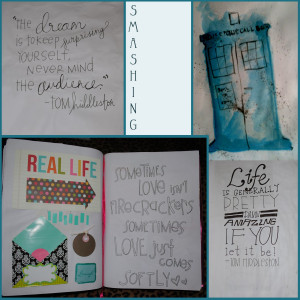 "The dream
is to keep surprising
yourself,
never mind
the audience."
-Tom Hiddleston
SMASHING
POLICE CALL BOX
REAL LIFE
SOMETIMES
LOVE isn't
FIRECRACKERS
SOMETIMES
LOVE just
COMES
SOFTLY
Life
is GENERALLY
PRETTY
DAMN
AMAZING
IF YOU
let it be!
-TOM HIDDLESTON